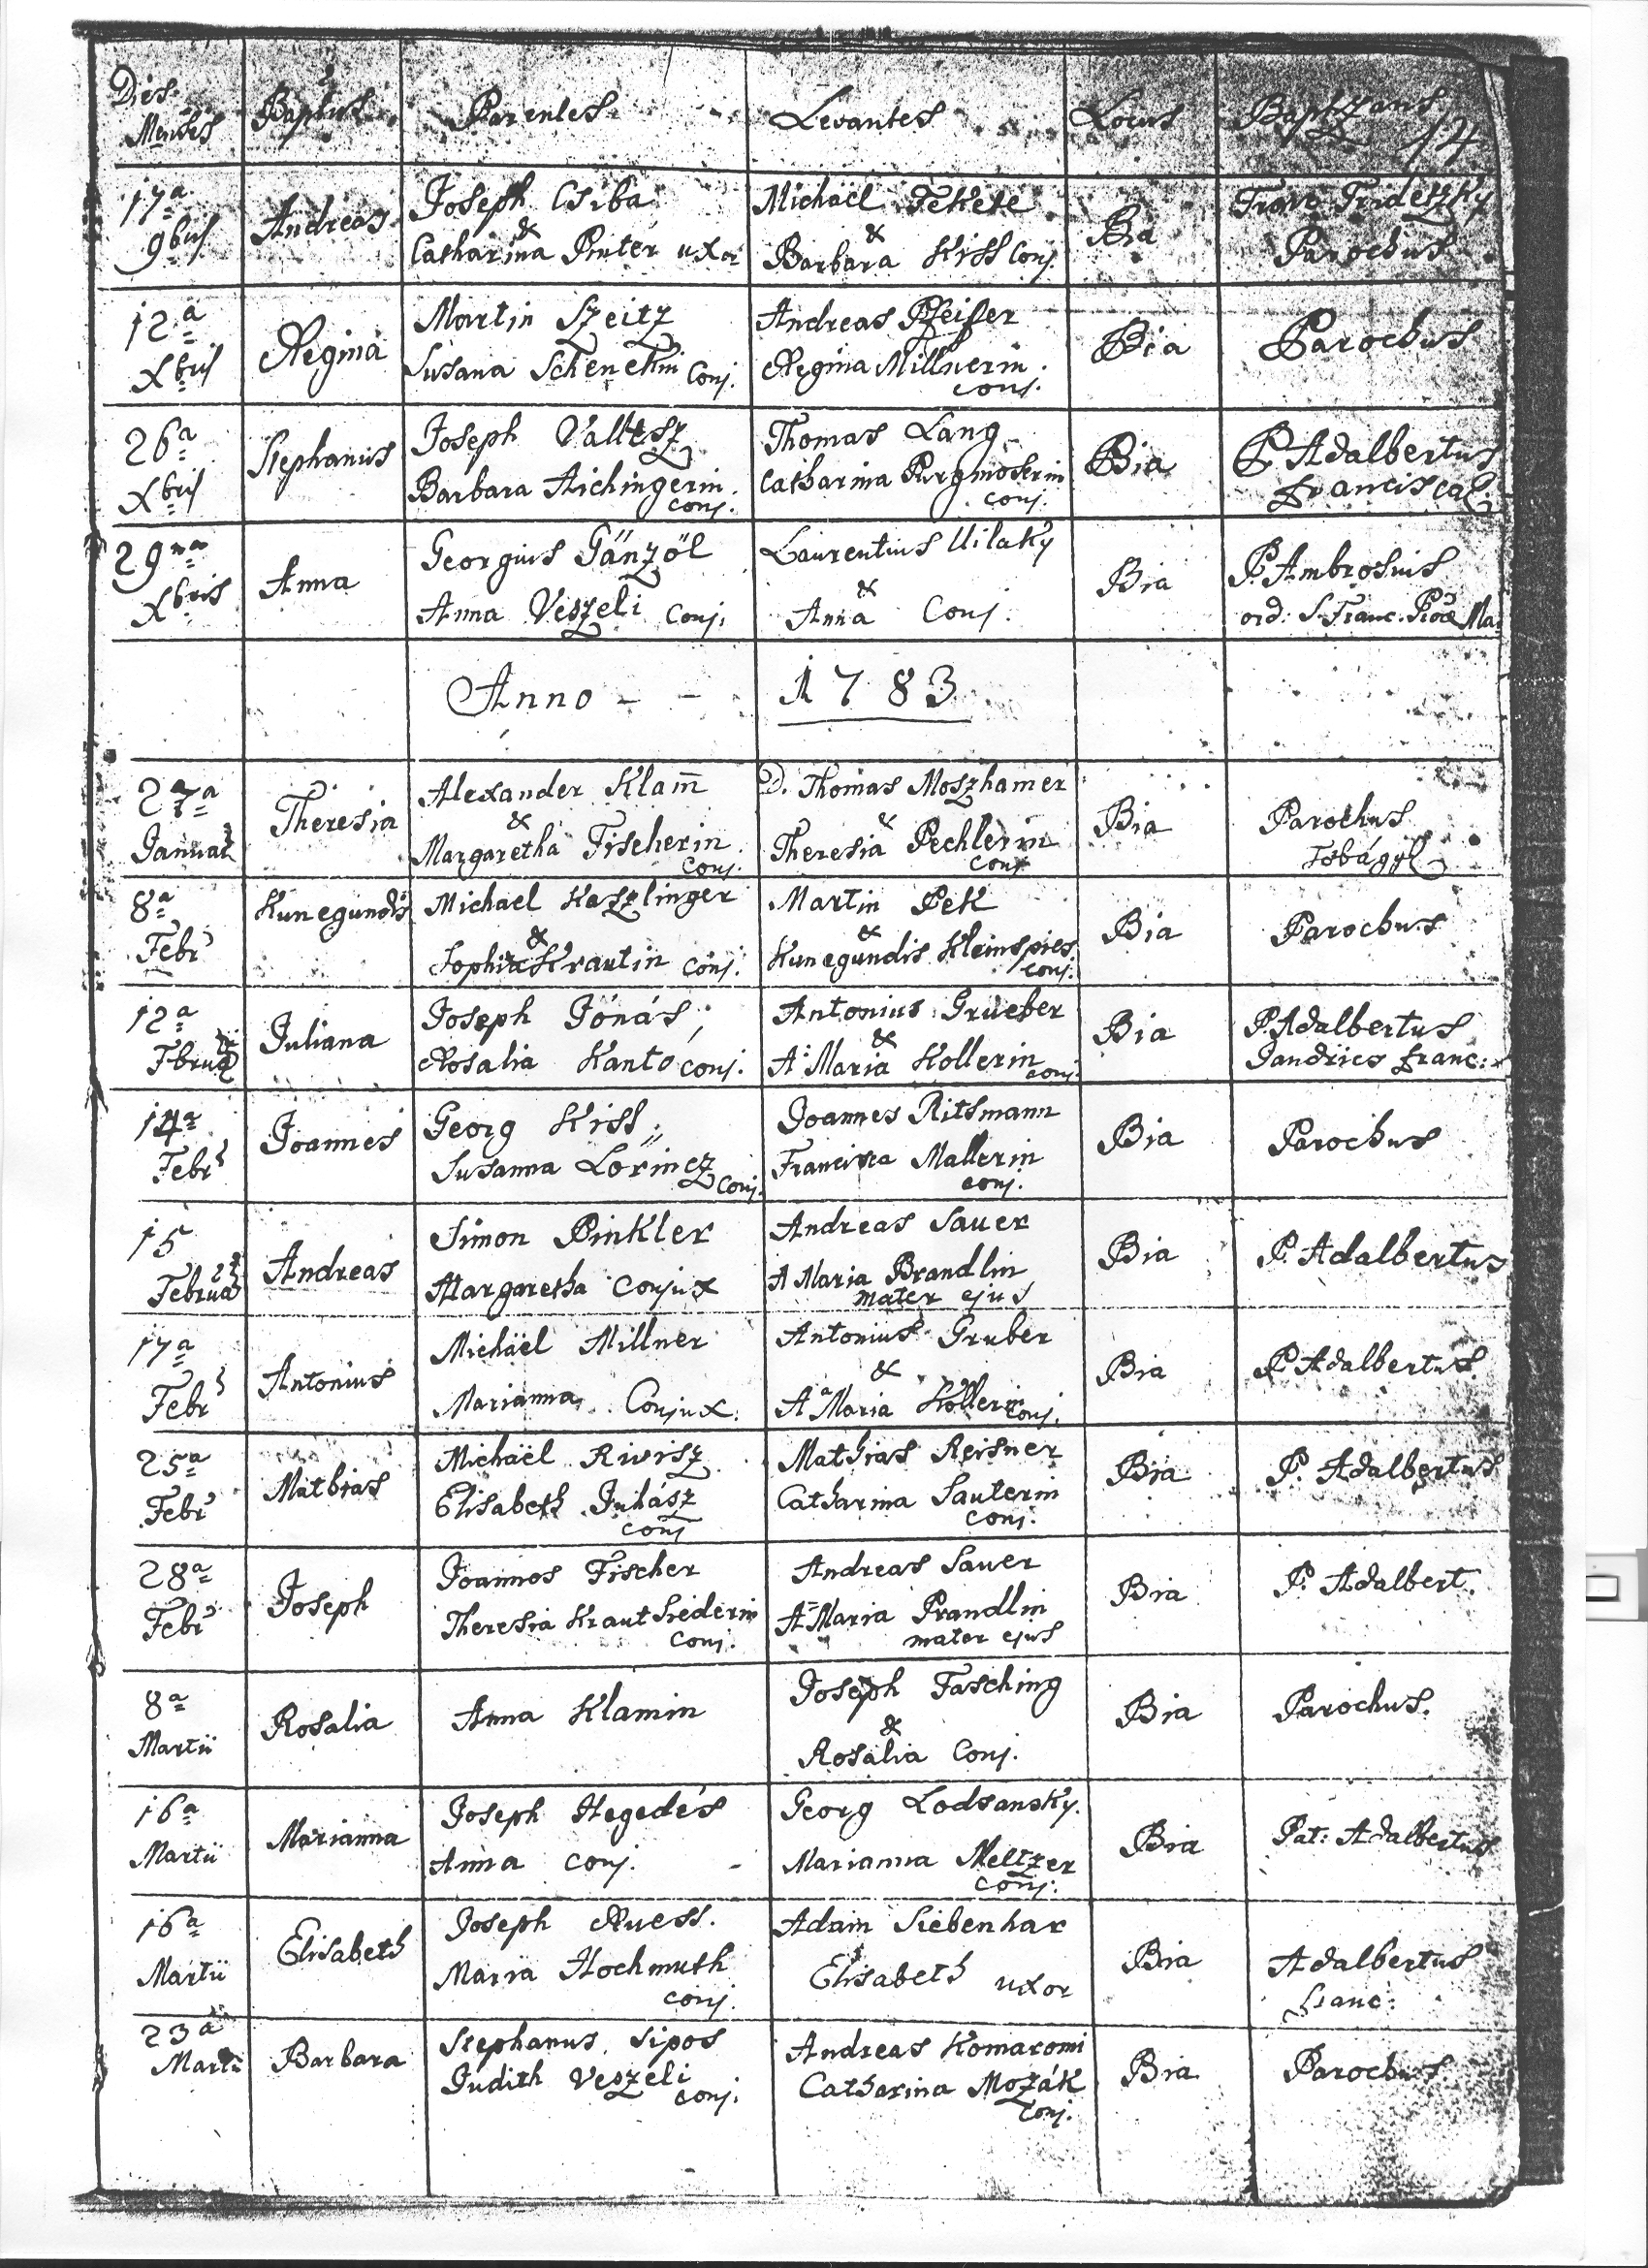 Dies Mensis Baptus Parentes Levantes Locus Baptzans
14
17a 9bris Andreas Joseph Csiba & Catharina Pinter uxor Michaël Fekete & Barbara Kiss Conj. Bia Parochus
12a Xbris Regina Martin Szeitz Susana Schenekin Conj. Andreas Pfeifer Regina Millnerin conj. Bia Parochus
26a Xbris Stephanus Joseph Valtesz Barbara Aichingerin conj. Thomas Lang Catharina Purgmoserin conj. Bia P Adalbertus Franciscaz
29na Xbris Anna Georgius Gänzöl Anna Veszeli Conj. Laurentius Uilaky & Anna Conj. Bia P. Ambrosius ord: S. Franc. Ma.
Anno - - 1783
27a Januar Theresia Alexander Klam̄ & Margaretha Fischerin conj. D. Thomas Moszhamer & Theresia Pechlerin conj Bia Parochus
8a Febr Kunegundis Michael Keszlinger & Sophia Krautin conj. Martin Pek & Kunegundis Kleinspies conj. Bia Parochus
12a Juliana Joseph Jónás; Rosalia Kantó conj. Antonius Grueber & A: Maria Kollerin conj Bia P. Adalbertus Jandrics franc:
14a Febr Joannes Georg Kiss; Susanna Lőrincz Conj. Joannes Ritsmann Francisca Mallerin conj. Bia Parochus
15 Februa Andreas Simon Pinkler Margaretha Conjux Andreas Sauer A Maria Brandlin mater ejus Bia P. Adalbertus
17a Febr Antonius Michäel Millner Marianna Conjux. Antonius Gruber & Aa Maria Kollerin conj. Bia P. Adalbertus.
25a Febr Mathias Michäel Rivisz Elisabeth Juhász conj Mathias Reisner Catharina Sauterin conj. Bia P. Adalbertus
28a Febr Joseph Joannes Fischer Theresia Krautsiederin Conj. Andreas Sauer A Maria Prandlin mater ejus Bia P. Adalbert.
8a Martii Rosalia Anna Klamin Joseph Fasching & Rosalia Conj. Bia Parochus.
16a Martii Marianna Joseph Hegedės Anna conj. Georg Lodsansky. Marianna Meltzer conj. Bia Pat: Adalbertus
16a Martii Elisabeth Joseph Ruess. Maria Hochmuth conj. Adam Siebenhar & Elisabeth uxor Bia Adalbertus Franc:
23a Martii Barbara Stephanus Sipos Judith Veszeli conj. Andreas Komaromi Catharina Mozák conj. Bia Parochus